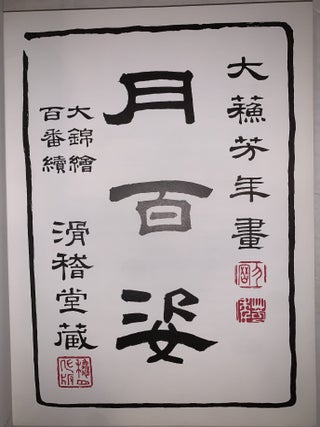 大蘓芳年畫
月百姿
大錦繪
百番續
滑稽堂蔵